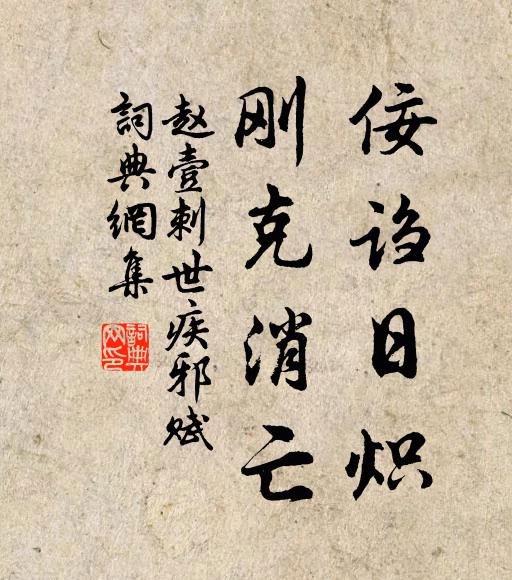 佞诌日炽
刚克消亡
赵壹刺世疾邪赋
詞典網集
詞典网印